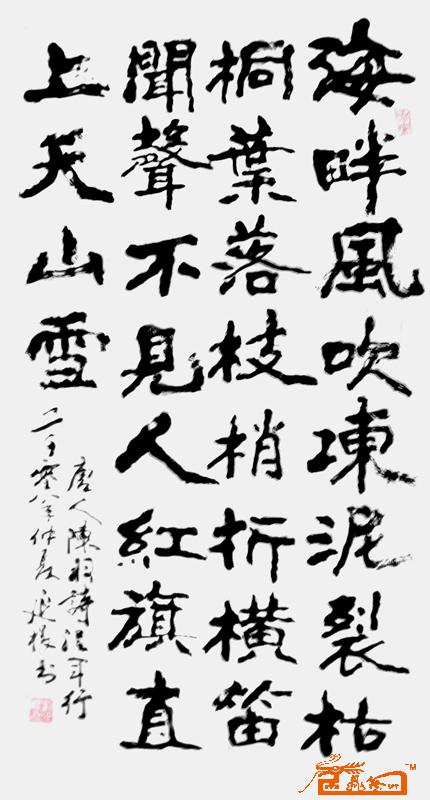 海畔風吹凍泥裂枯
桐葉落枝梢折橫笛
聞聲不見人紅旗直
上天山雪
唐人陳羽詩從军行
二千零八年仲夏延书
TM